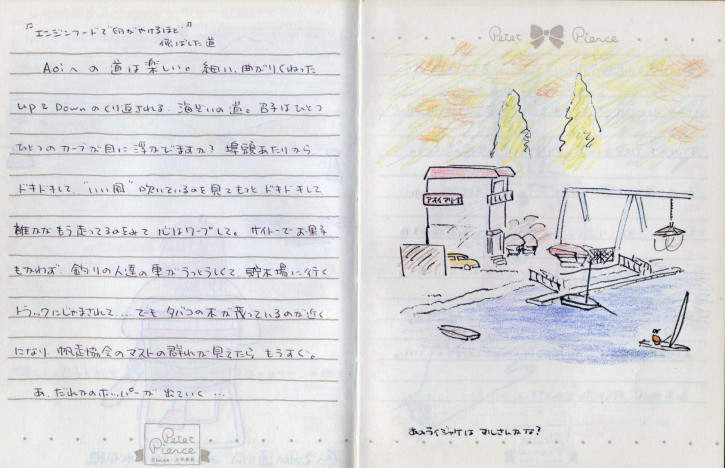 "エンジンフードで卵がやけるほど"
飛ばした道
Aoiへの道は楽しい。細い、曲がりくねった
UpとDownのくり返される、海ぞいの道。呂子はひとつ
ひとつのカーブが目に浮かびますか？埠頭あたりから
ドキドキして、"いい風"吹いているのを見てもっとドキドキして
誰かがもう走ってるのをみて心はワープして。サイトーでお菓子
もかわず、釣りの人達の車がうっとうしくて貯木場に行く
トラックにじゃまされて…でもタバコの木が茂っているのが近く
になり帆走協会のマストの群れが見てたらもうすぐ。
あ、だれかのホッパーが出ていく…
Peter Pierce
Peter Pierce
アオイマリーナ
あのライジャケはマルさんかな？